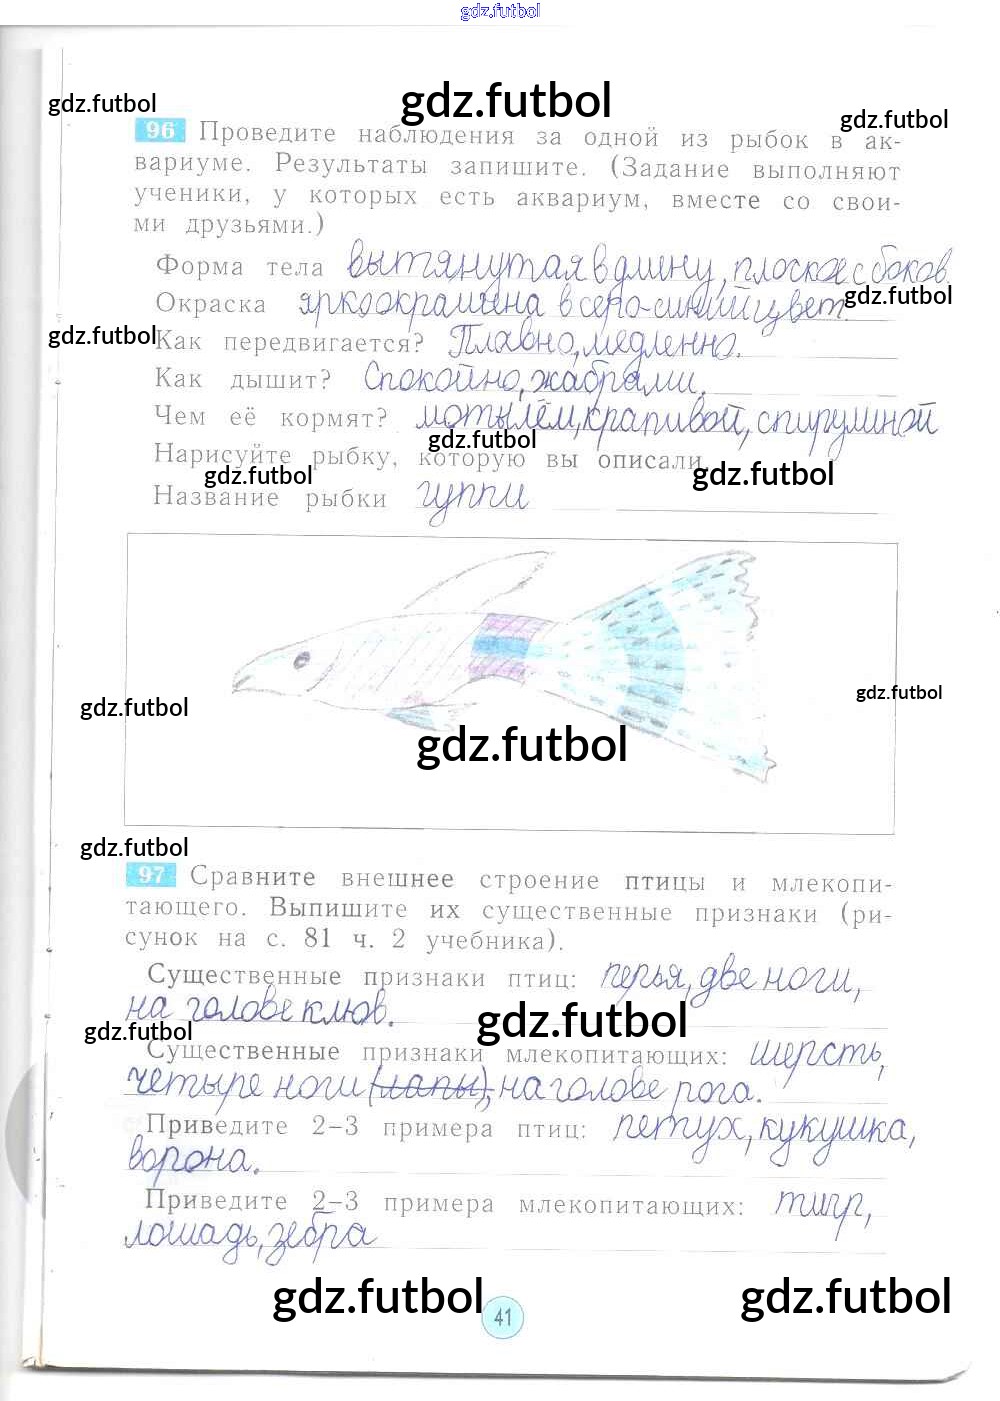 gdz.futbol
gdz.futbol
gdz.futbol
gdz.futbol
96 Проведите наблюдения за одной из рыбок в ак-
вариуме. Результаты запишите. (Задание выполняют
ученики, у которых есть аквариум, вместе со свои-
ми друзьями.)
Форма тела вытянутая в длину, плоское с боков.
Окраска ярко окрашена в серо-синий цвет.
gdz.futbol
gdz.futbol
Как передвигается? Плавно, медленно.
Как дышит? Спокойно, жабрами.
Чем её кормят? мотылём, крапивой, спирулиной
gdz.futbol
Нарисуйте рыбку, которую вы описали.
gdz.futbol
gdz.futbol
Название рыбки гуппи
gdz.futbol
gdz.futbol
gdz.futbol
gdz.futbol
97 Сравните внешнее строение птицы и млекопи-
тающего. Выпишите их существенные признаки (ри-
сунок на с. 81 ч. 2 учебника).
Существенные признаки птиц: перья, две ноги,
на голове клюв.
gdz.futbol
gdz.futbol
Существенные признаки млекопитающих: шерсть,
четыре ноги (лапы), на голове рога.
Приведите 2–3 примера птиц: петух, кукушка,
ворона.
Приведите 2–3 примера млекопитающих: тигр,
лошадь, зебра
gdz.futbol
gdz.futbol
41